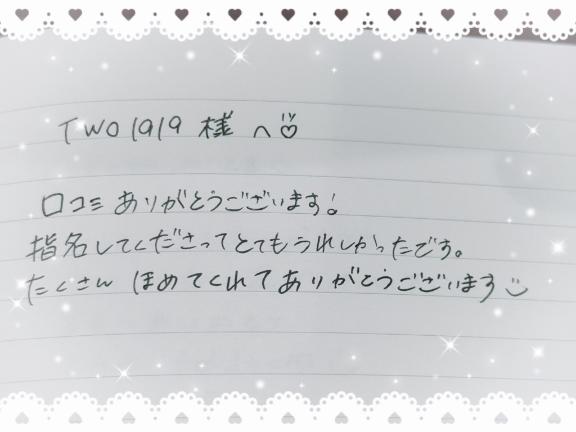 TWO1919 様 へ
口コミ ありがとうございます!
指名してくださってとてもうれしかったです。
たくさん ほめてくれてありがとうございます